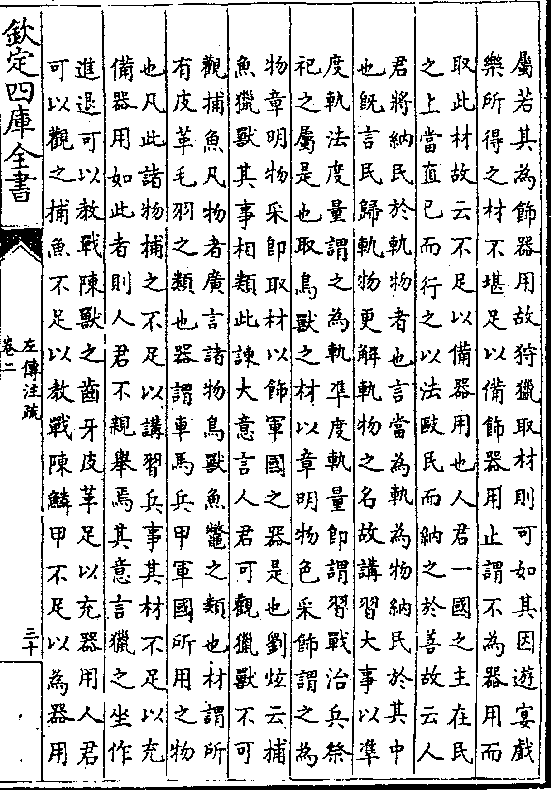 屬若其為飾器用故狩獵取材則可如其因遊宴戲
樂所得之材不堪足以備飾器用止謂不為器用而
取此材故云不足以備器用也人君一國之主在民
之上當直已而行之以法歐民而納之於善故云人
君將納民於軌物者也言當為軌為物納民於其中
也既言民歸軌物更解軌物之名故講習大事以準
度軌法度量謂之為軌準度軌量即謂習戰治兵祭
祀之屬是也取鳥獸之材以章明物色采飾謂之為
物章明物采即取材以飾軍國之器是也劉炫云捕
魚獵獸其事相類此諫大意言人君可觀獵獸不可
觀捕魚凡物者廣言諸物鳥獸魚鼈之類也材謂所
有皮革毛羽之類也器謂車馬兵甲軍國所用之物
也凡此諸物捕之不足以講習兵事其材不足以充
備器用如此者則人君不親舉焉其意言獵之坐作
進退可以教戰陳獸之齒牙皮革足以充器用人君
可以觀之捕魚不足以教戰陳鱗甲不足以為器用
欽定四庫全書
左傳注疏
卷二
三十